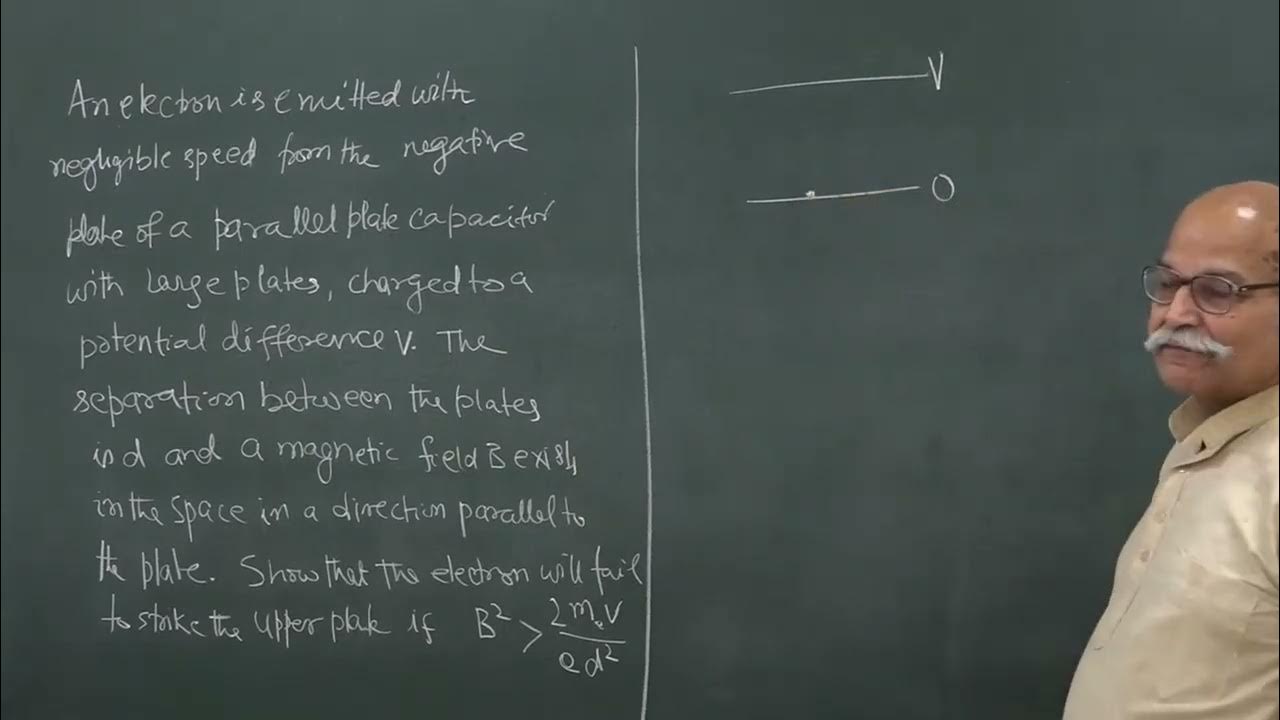 An electron is emitted with
negligible speed from the negative
plate of a parallel plate capacitor
with large plates, charged to a
potential difference V. The
separation between the plates
is d and a magnetic field B exists
in the space in a direction parallel to
the plate. Show that the electron will fail
to strike the upper plate if B² > 2mₑV / ed²
V
O